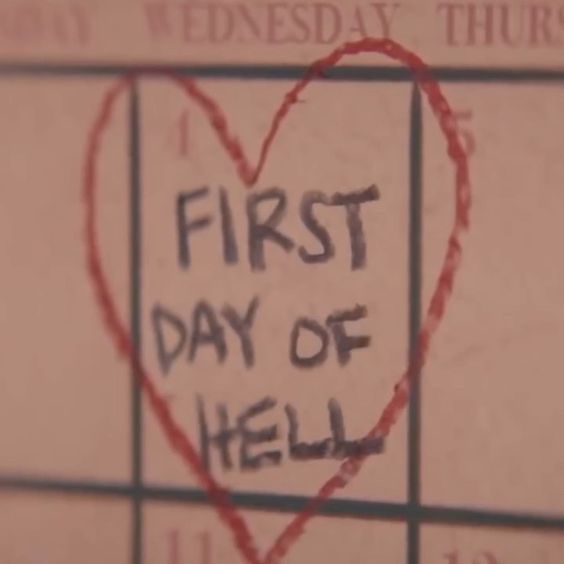 WEDNESDAY THURS
4 5
FIRST
DAY OF
HELL
11 12